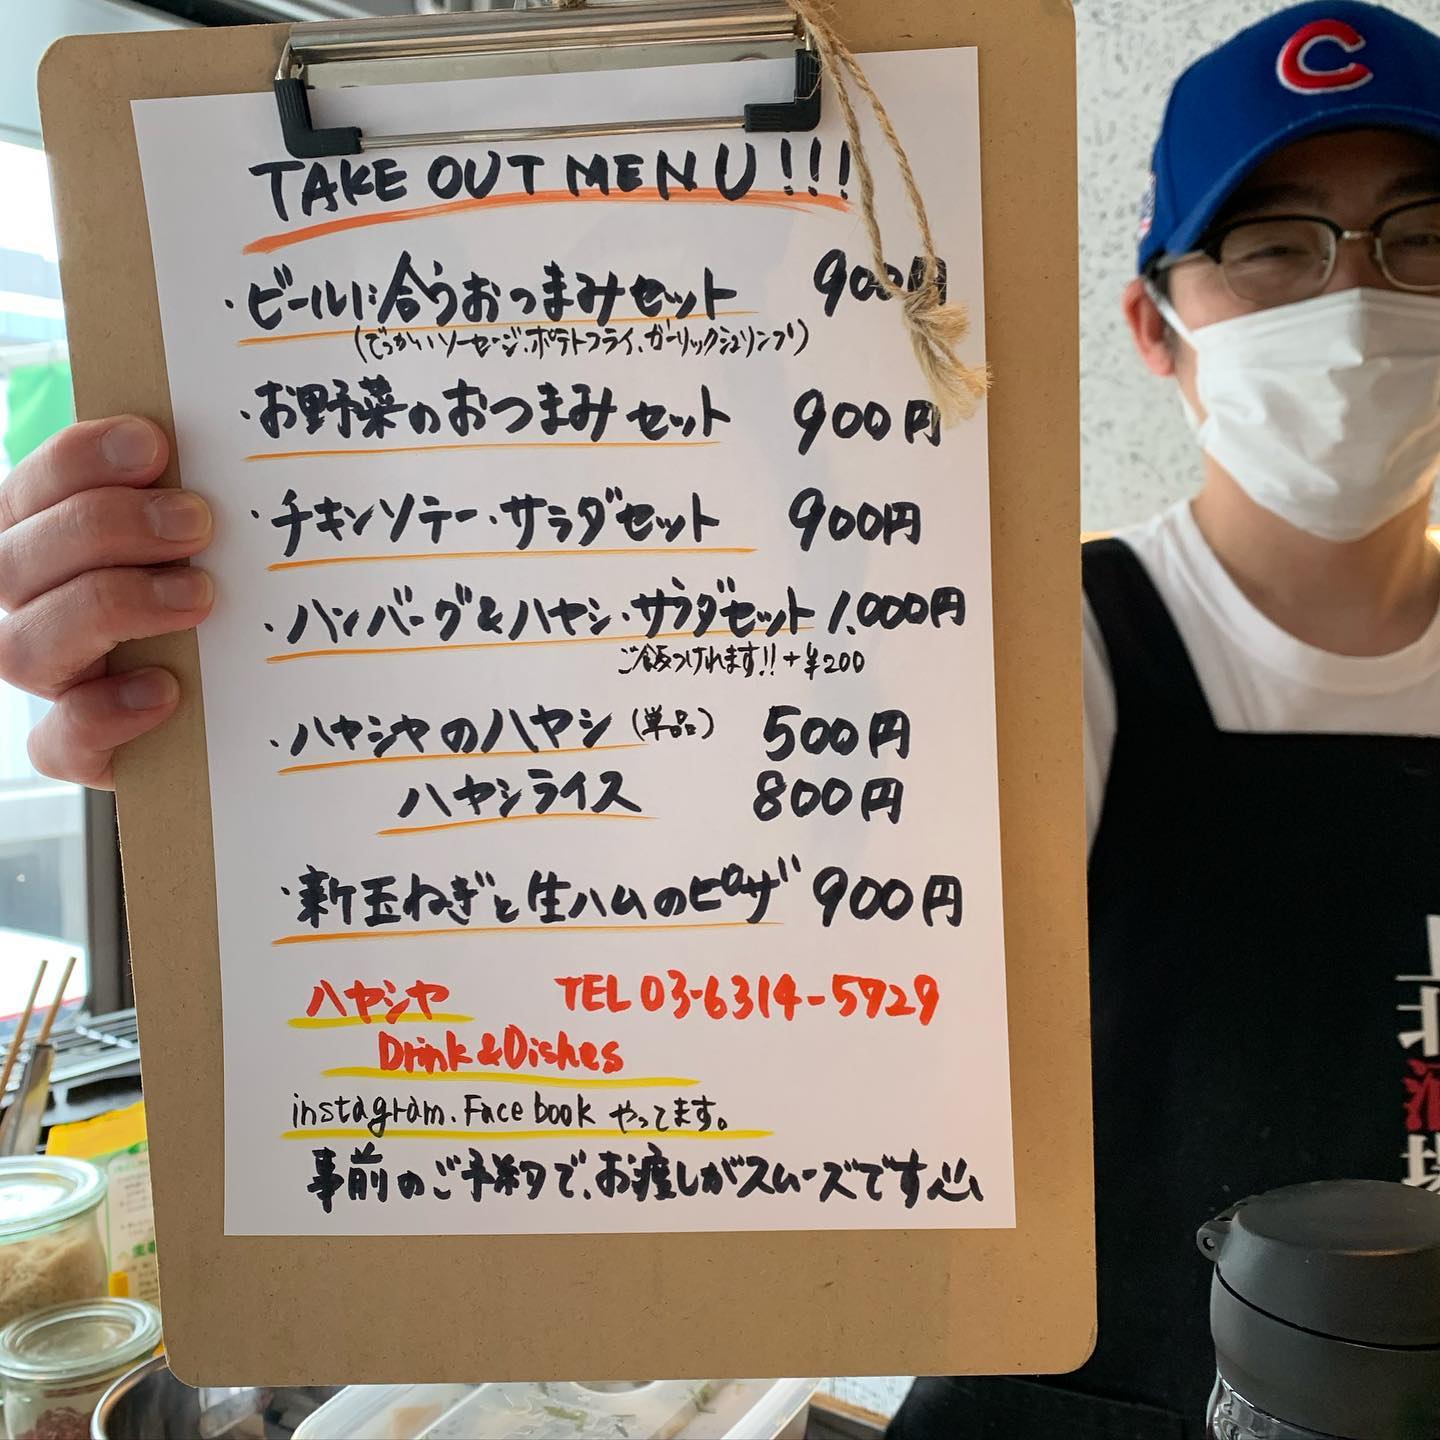 TAKE OUT MENU!!!
・ビールに合うおつまみセット 900円
(でっかいソーセージ、ポテトフライ、ガーリックシュリンプ)
・お野菜のおつまみセット 900円
・チキンソテー・サラダセット 900円
・ハンバーグ&ハヤシ・サラダセット 1,000円
ご飯つけれます!!+¥200
・ハヤシヤのハヤシ(単品) 500円
ハヤシライス 800円
・新玉ねぎと生ハムのピザ 900円
ハヤシヤ TEL 03-6314-5729
Drink&Dishes
instagram.Facebookやってます。
事前のご予約で、お渡しがスムーズです
C
酒
場